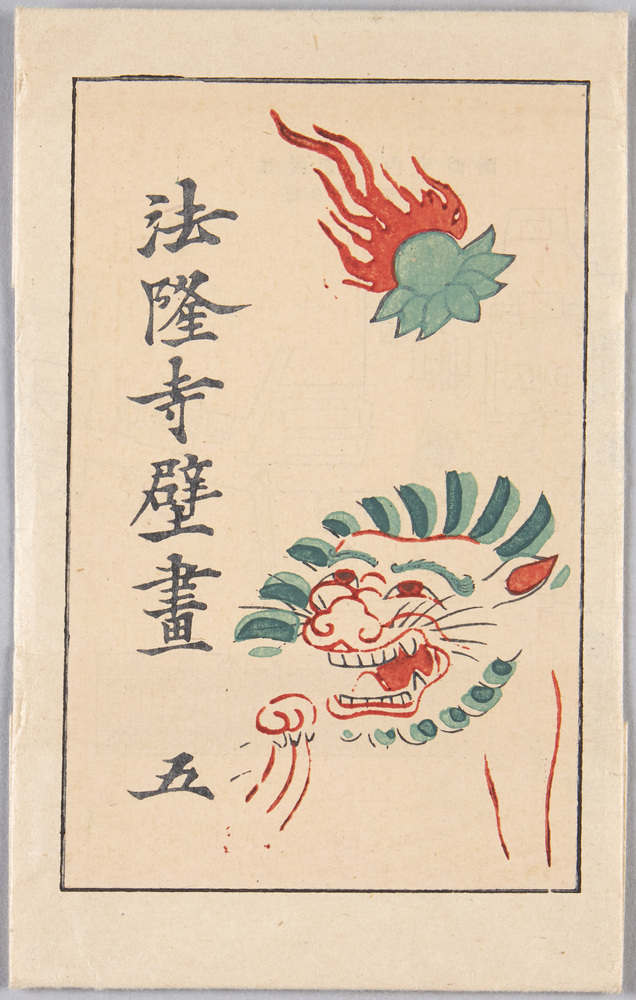 法隆寺壁畫 五